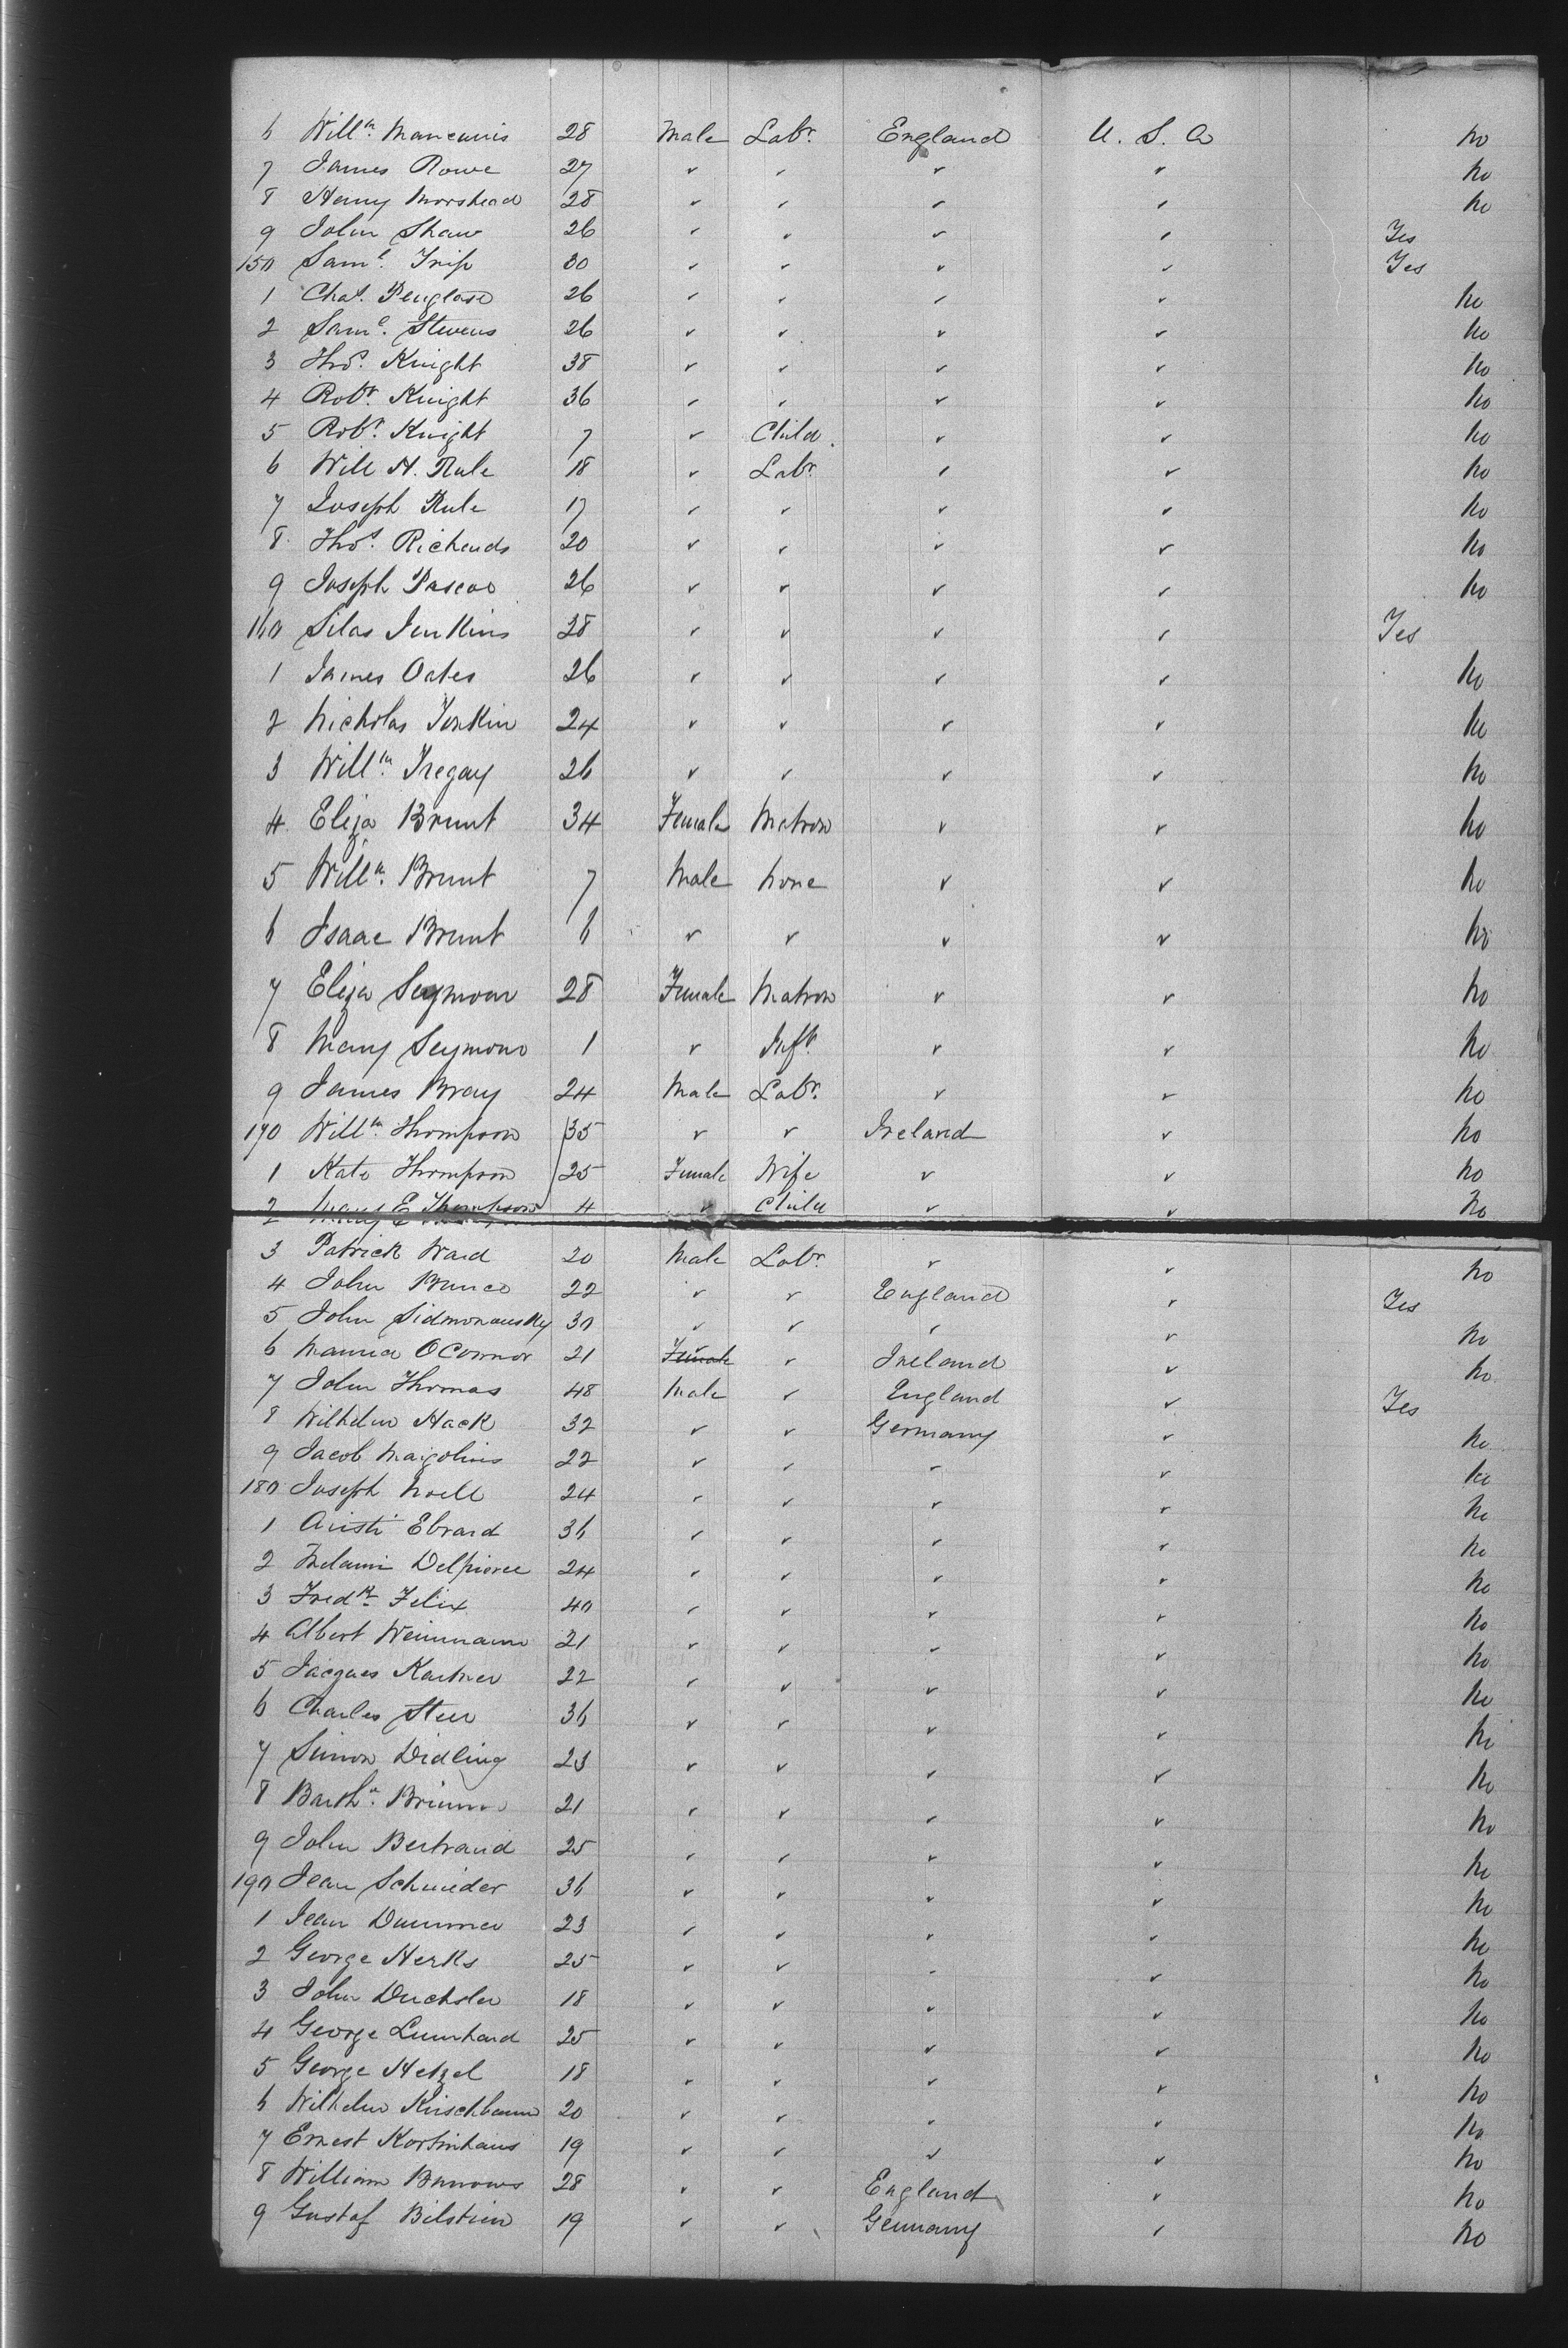 6 Willm. Mancarris 28 Male Labr. England U. S. A No
7 James Rowe 27 " " " " No
8 Henry Morshead 28 " " " " No
9 John Shaw 26 " " " " Yes
150 Saml. Trip 30 " " " " Yes
1 Chas. Penglase 26 " " " " No
2 Saml. Stevens 26 " " " " No
3 Thos. Knight 38 " " " " No
4 Robt. Knight 36 " " " " No
5 Robt. Knight 7 " Child " " No
6 Will H. Rule 18 " Labr. " " No
7 Joseph Rule 17 " " " " No
8 Thos. Richards 20 " " " " No
9 Joseph Pascoe 26 " " " " No
160 Silas Jenkins 28 " " " " Yes
1 James Oates 26 " " " " No
2 Nicholas Tonkin 24 " " " " No
3 Willm. Tregay 26 " " " " No
4 Eliza Brunt 34 Female Matron " " No
5 Willm. Brunt 7 Male None " " No
6 Isaac Brunt 6 " " " " No
7 Eliza Seymour 28 Female Matron " " No
8 Mary Seymour 1 " Inft. " " No
9 James Bray 24 Male Labr. " " No
170 Willm. Thompson 35 " " Ireland " No
1 Kate Thompson 25 Female Wife " " No
2 Mary E Thompson 4 " Child " " No
3 Patrick Ward 20 Male Labr. " " No
4 John Bunco 22 " " England " Yes
5 John Sidmonausky 30 " " " " No
6 Maurice OConnor 21 Female " Ireland " No
7 John Thomas 48 Male " England " Yes
8 Wilhelm Hack 32 " " Germany " No
9 Jacob Maigolius 22 " " " " No
180 Joseph Noell 24 " " " " No
1 Ebrard 36 " " " " No
2 Delpierre 24 " " " " No
3 Fredk. Felix 40 " " " " No
4 Albert Weinmann 21 " " " " No
5 Jacques Kartner 22 " " " " No
6 Charles Steer 36 " " " " No
7 Simon Didling 23 " " " " No
8 Barthw. 21 " " " " No
9 John Bertrand 25 " " " " No
190 Jean Schneider 36 " " " " No
1 Jean Dummer 23 " " " " No
2 George Herks 25 " " " " No
3 John Duchsler 18 " " " " No
4 George Lunhard 25 " " " " No
5 George Hetzel 18 " " " " No
6 Wilhelm Kirschbaum 20 " " " " No
7 Ernest Kortinhaus 19 " " " " No
8 William Burrows 28 " " England " No
9 Gustaf Bilstein 19 " " Germany " No